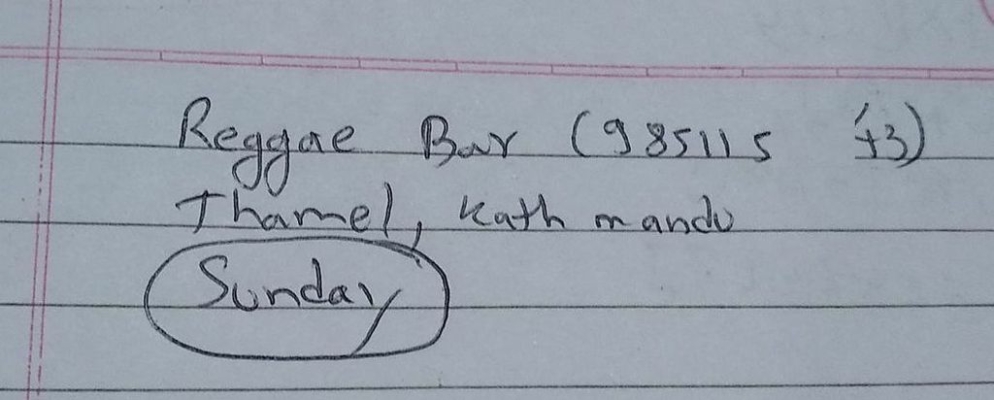 Reggae Bar (985115 43)
Thamel, Kathmandu
Sunday